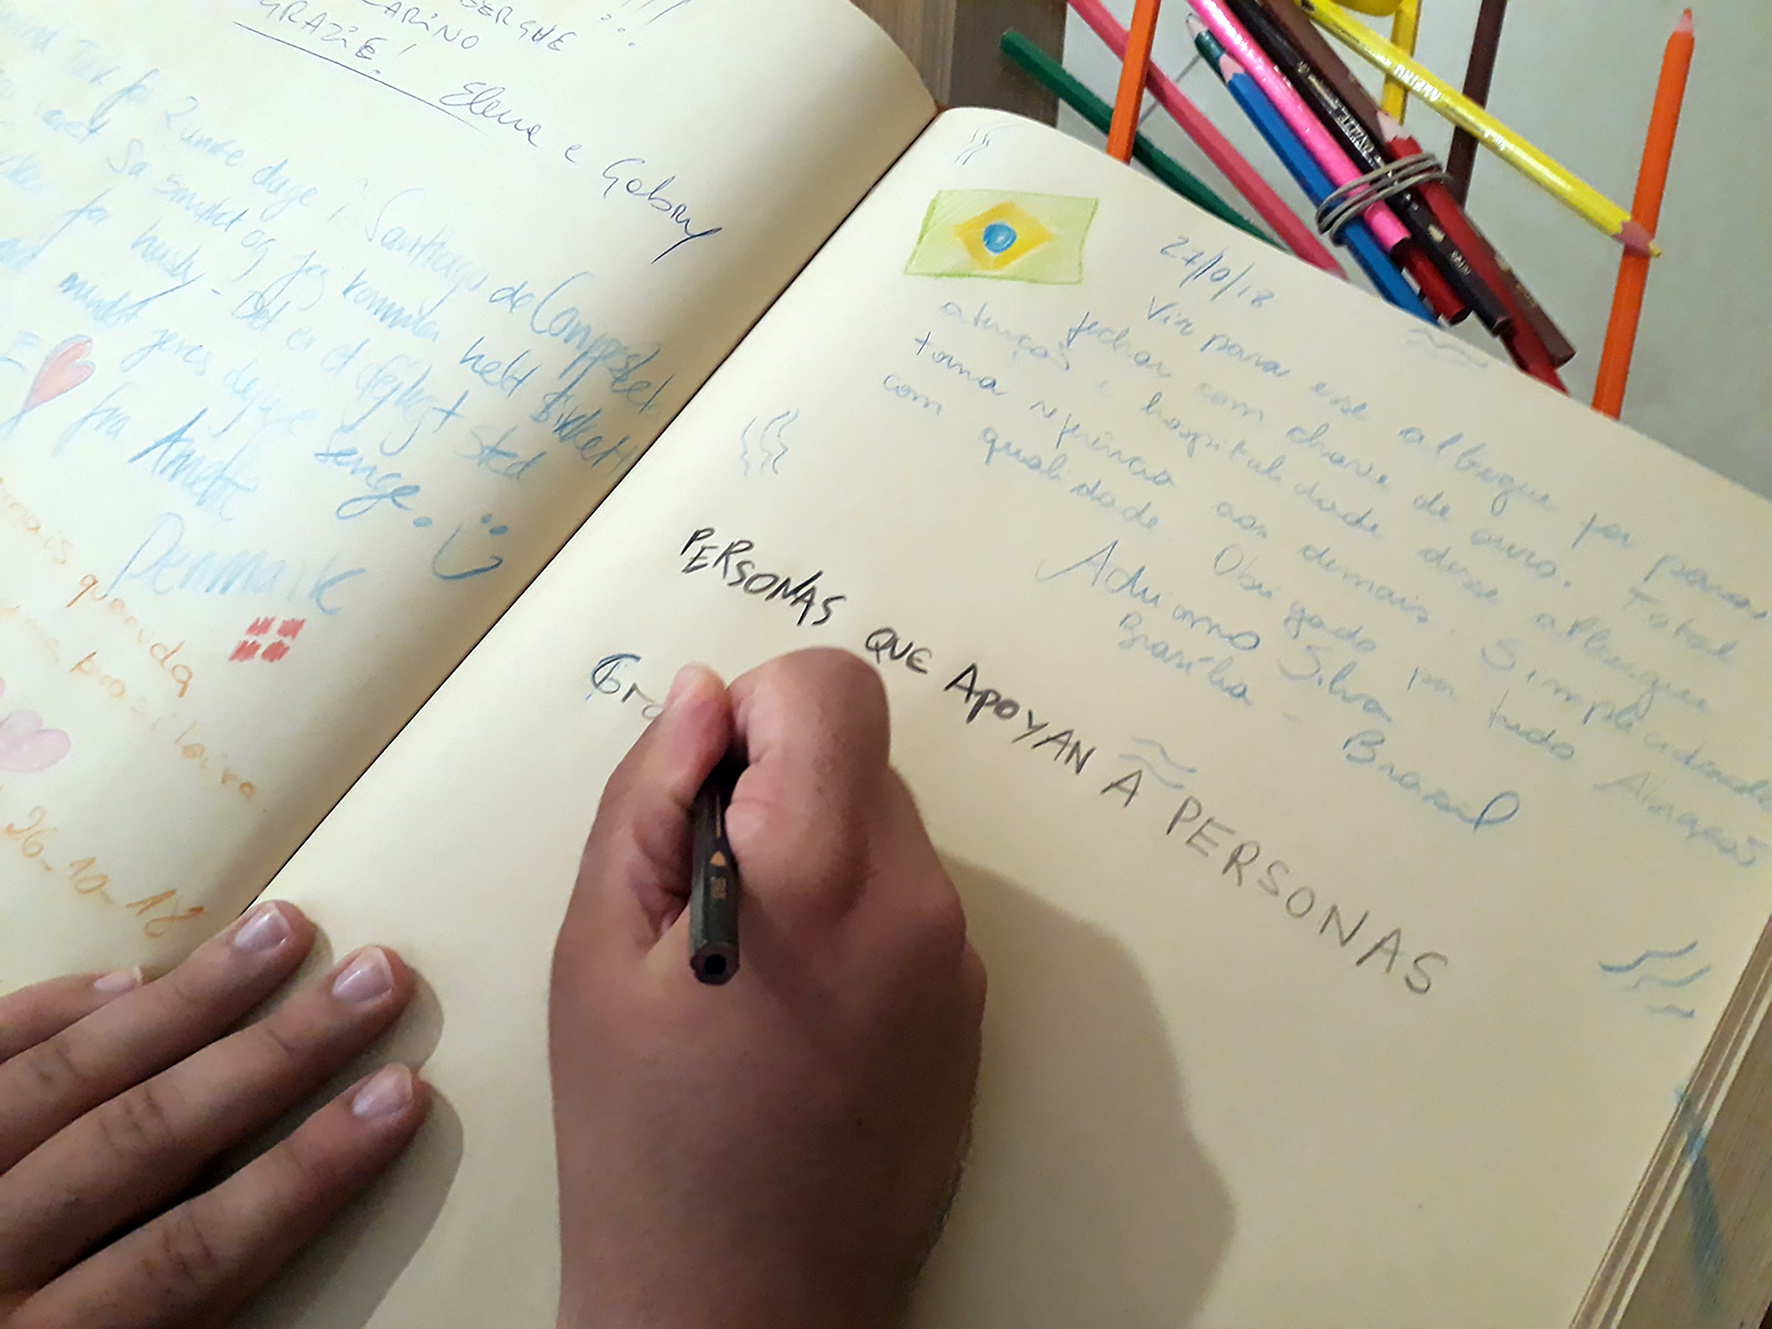 ALBERGUE
CARINO
GRAZIE!
Elena e Gabry
for 2 unge dage i Santiago de Compostel
og jeg kommer helt sikkert
Det er et dejligt sted
jeres dejlige senge. :)
fra Anette
Denmark
mais querida
brasileira.
26-10-18
27/10/18
Vir para esse albergue foi para
fechar com chave de ouro. Total
atenção e hospitalidade desse albergue
torna referência aos demais. Simplicidade
com qualidade. Obrigado por tudo Abraços
Adriano Silva
Brasília - Brasil
PERSONAS QUE APOYAN A PERSONAS
Gra